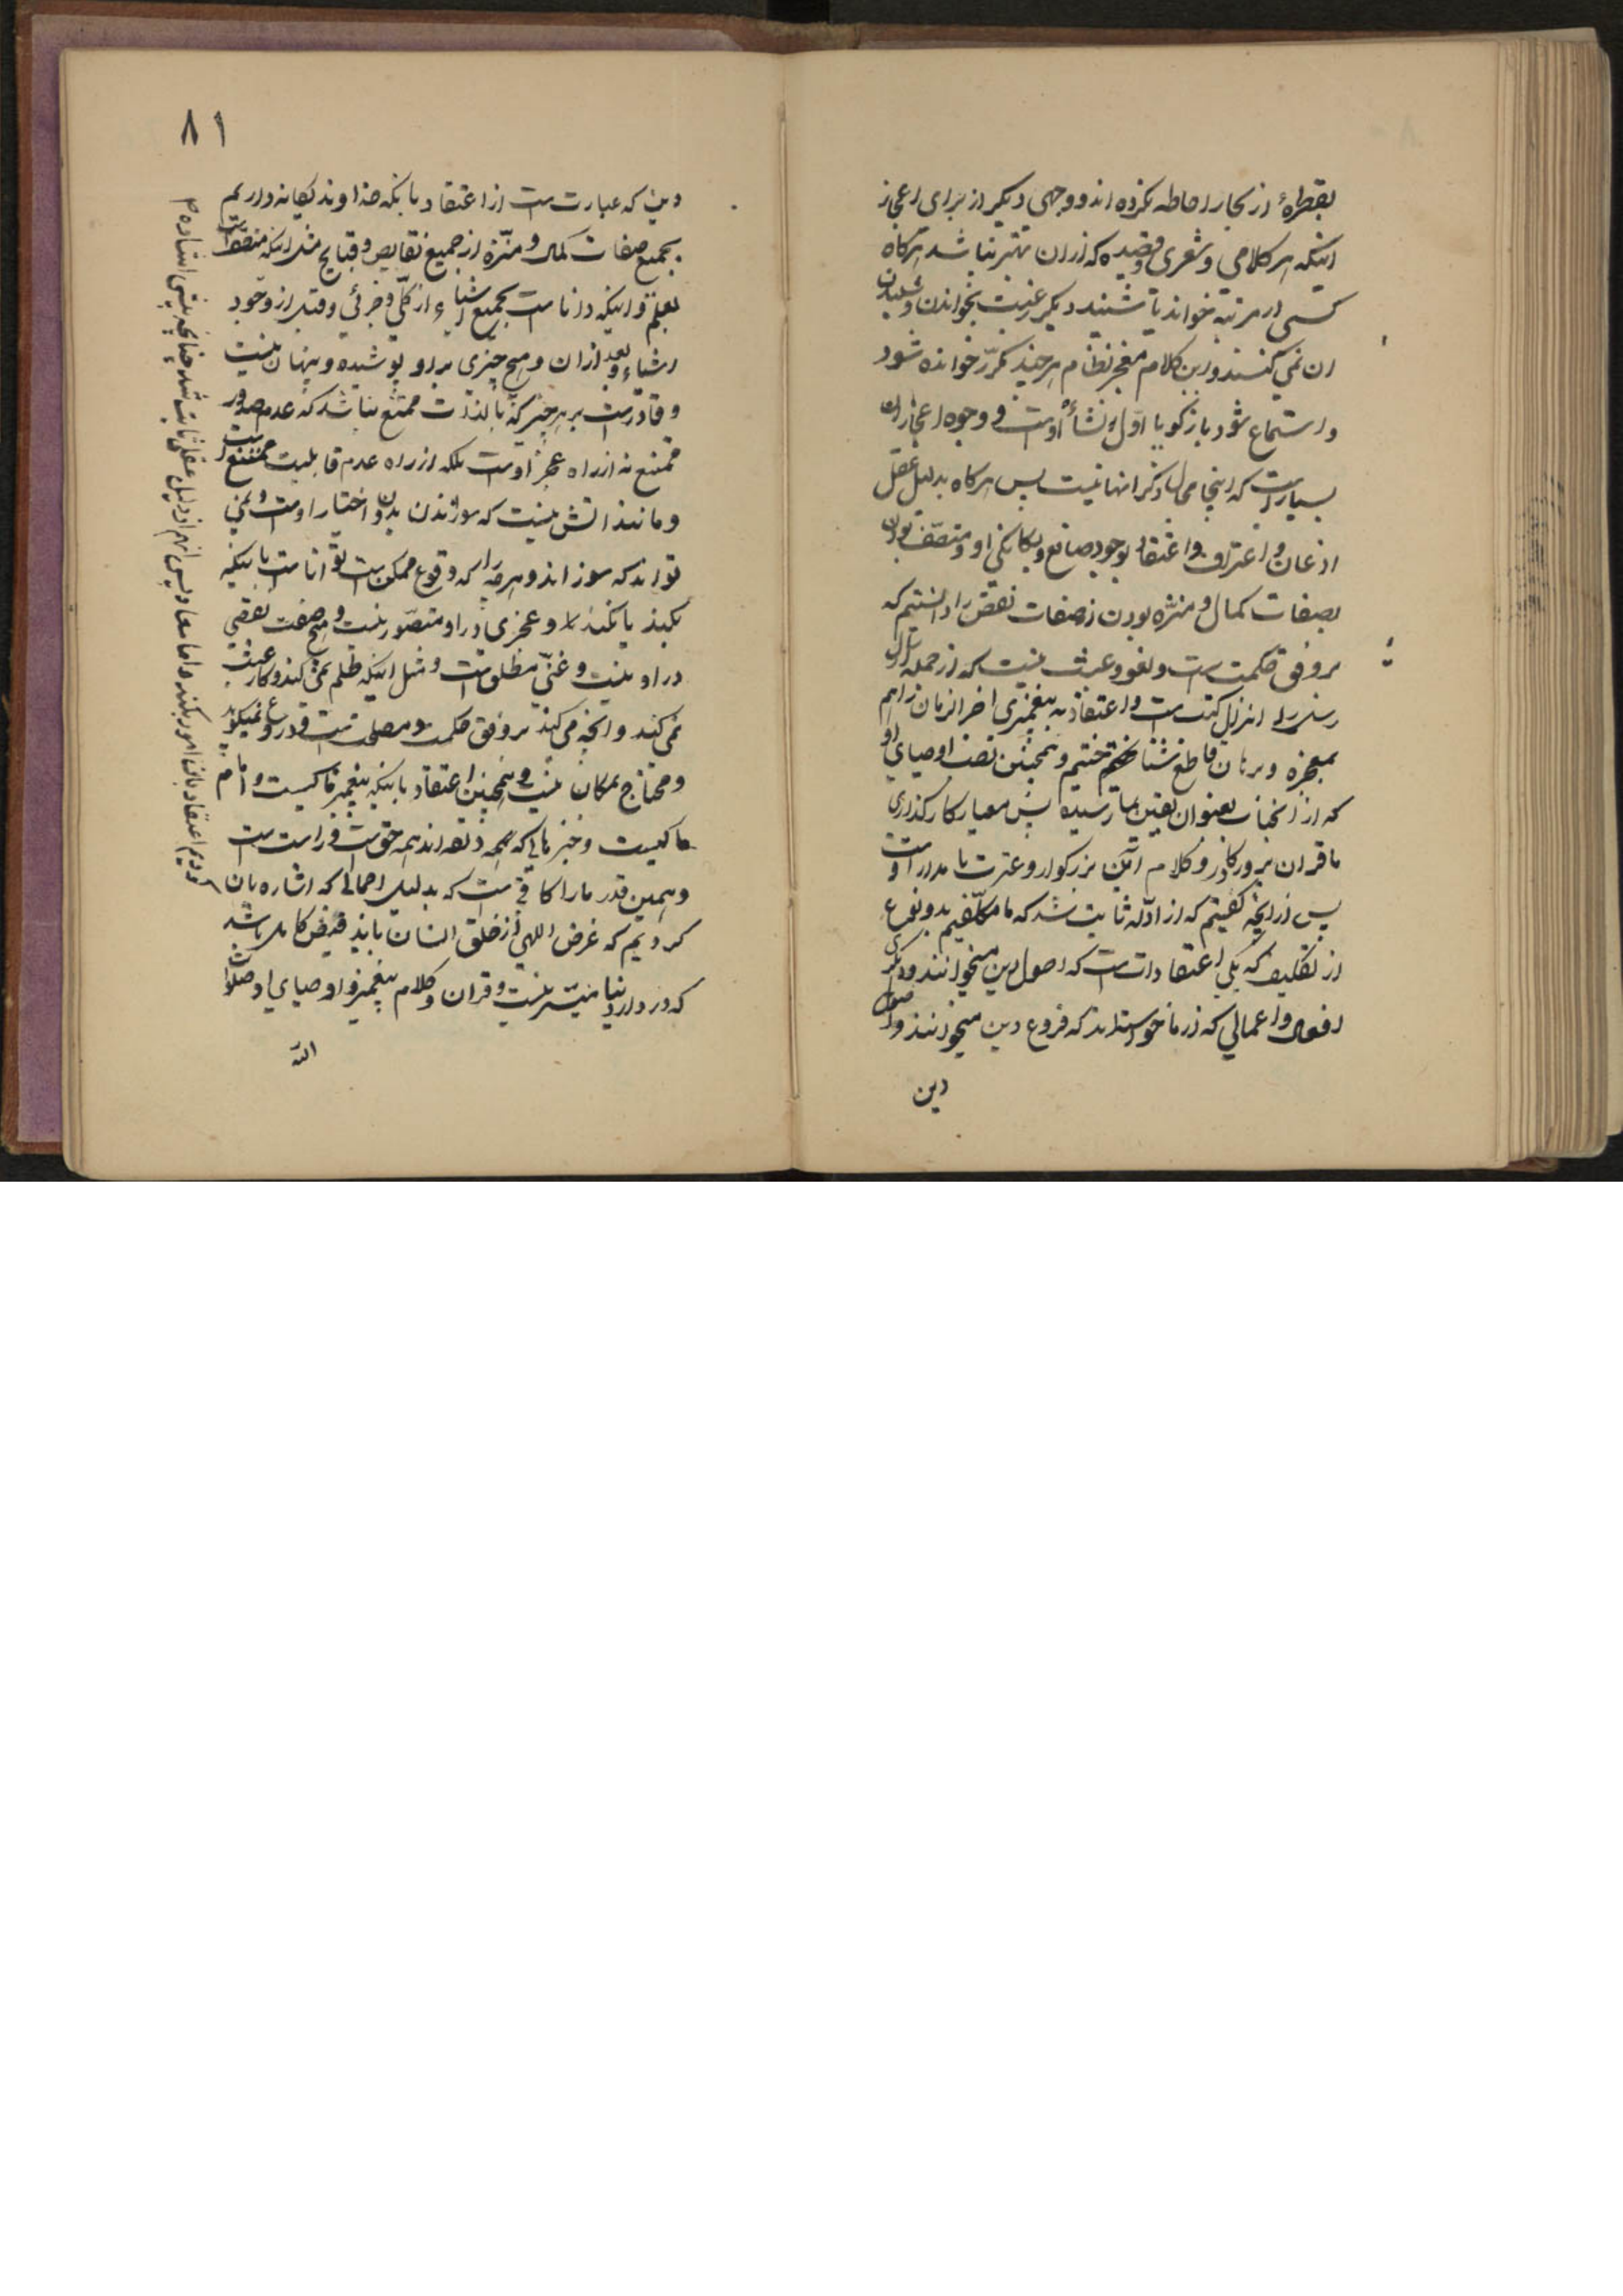 بقطرهٔ از بحار احاطه نکرده اند و وجهی دیکر از برای اعجاز
اینکه هر کلامی و شعری و قصیده که از ان بهتر نباشد هرکاه
کسی ده مرتبه خواند یا شنید دیکر رغبت بخواندن و شنیدن
ان نمی کنند و این کلام معجز نظام هر چند مکرّر خوانده شود
و استماع شود باز کویا اوّل نشأ اوست و وجوه اعجاز ان
بسیارست که اینجا محل ذکر انها نیست پس هرکاه بدلیل عقل
اذعان و اعتراف و اعتقاد بوجود صانع و یکانکی او و متصّف بودن
بصفات کمال و منزّه بودن از صفات نقص را دانستیم که
بر وفق حکمت است و لغو و عبث نیست که از جمله ارسال
رسل و انزال کتب است و اعتقاد به پیغمبری اخر الزمان را هم
بمعجزه و برهان قاطع شناختیم و همچنین نصب اوصیای او
که از انجناب بعنوان یقین بما رسیده پس معیار کار کذاری
ما قران پرورکار و کلام ائمّه بزرکوار و عترت با مدار اوست
پس از انچه کفتیم که از ادلّه ثابت شد که ما مکلّفیم بدو نوع
از تکلیف که یکی اعتقادات است که اصول دین میخوانند و دیکری
افعال و اعمالی که از ما خواسته اند که فروع دین میخوانند و اصول
دین
٨١
دین که عبارت است از اعتقاد بانکه خداوند یکانه داریم
بجمیع صفات کمال و منزّه از جمیع نقایص و قبایح مثل اینکه متصّف است
بعلم و اینکه دانا است بجمیع اشیاء از کلّی و جزئی و قبل از وجود
اشیاء و بعد از ان و هیچ چیزی بر او پوشیده و پنهان نیست
و قادر است بر هر چیز که بالذّات ممتنع نباشد که عدم صدور
ممتنع نه از راه عجز اوست بلکه از راه عدم قابلیت ممتنع است
و مانند اتش نیست که سوزندن بدون اختیار اوست و نمی
تواند که نسوزاند و هر چه را که وقوع ممکن است توانا است باینکه
بکند یا نکند و عجزی در او متصّور نیست و هیچ صفت نقصی
در او نیست و غنّی مطلق است و مثل اینکه ظلم نمی کند و کار عبث
نمی کند و انچه می کند بر وفق حکمت و مصلحت است و دروغ نمیکوید
و محتاج بمکان نیست و همچنین اعتقاد باینکه پیغمبر ما کیست و امام
ما کیست و خبرهائی که همه داده اند همه حق است و راست است
و همین قدر ما را کافی است که بدلیل اجمالی که اشاره بان
کردیم که غرض اللهی از خلق انسان باید فیض کامل باشد
که در دار دنیا میّسر نیست و قران و کلام پیغمبر و اوصیای او صلوات
الله